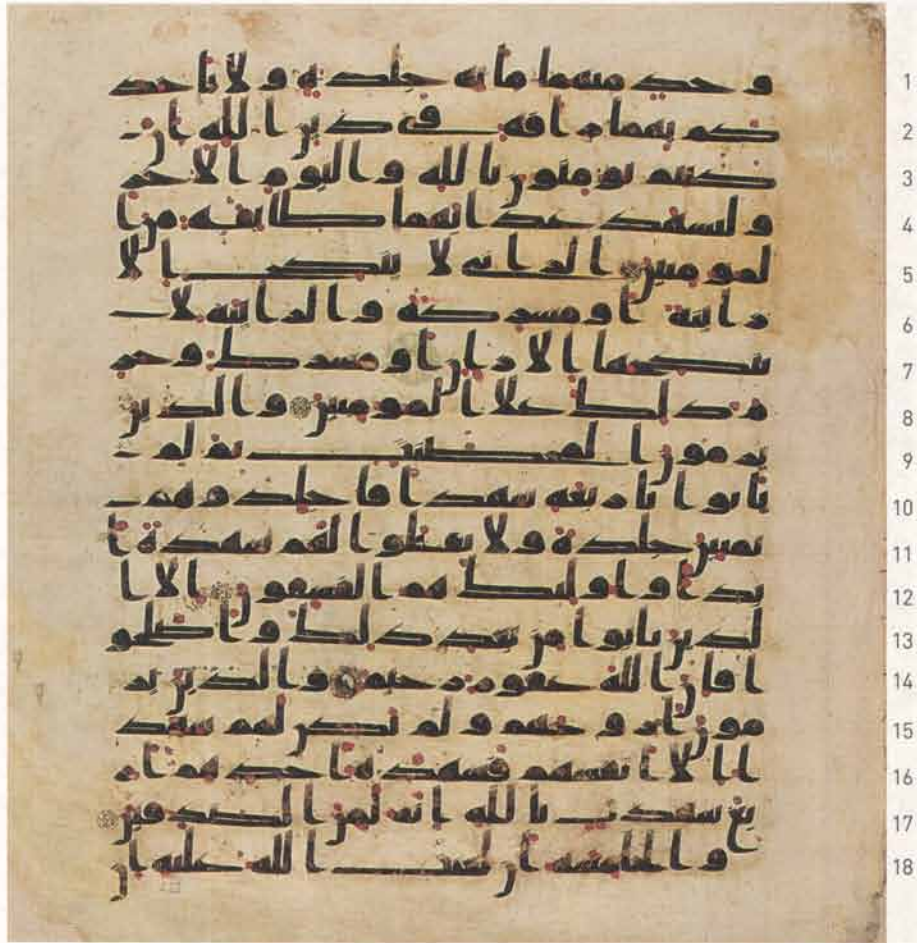 وحد منهما مائة جلدة ولا تاخذ 1
كم بهما رافة في دين الله ان 2
كنتم تومنون بالله واليوم الاخر 3
وليشهد عذابهما طائفة من ا 4
لمومنين الزاني لا ينكح الا 5
زانية او مشركة والزانية لا 6
ينكحها الا زان او مشرك وحر 7
م ذلك علا المومنين والذين 8
يرمون المحصنت ثم لم 9
ياتوا باربعة شهدا فاجلدوهم 10
ثمنين جلدة ولا تقبلوا لهم شهدة ا 11
بدا واوليك هم الفسقون الا ا 12
لذين تابوا من بعد ذلك واصلحو 13
ا فان الله غفور رحيم والذين ير 14
مون ازوجهم ولم يكن لهم شهد 15
ا الا انفسهم فشهدة احدهم ار 16
بع شهدت بالله انه لمن الصدقين 17
والخمسة ان لعنت الله عليه ان 18